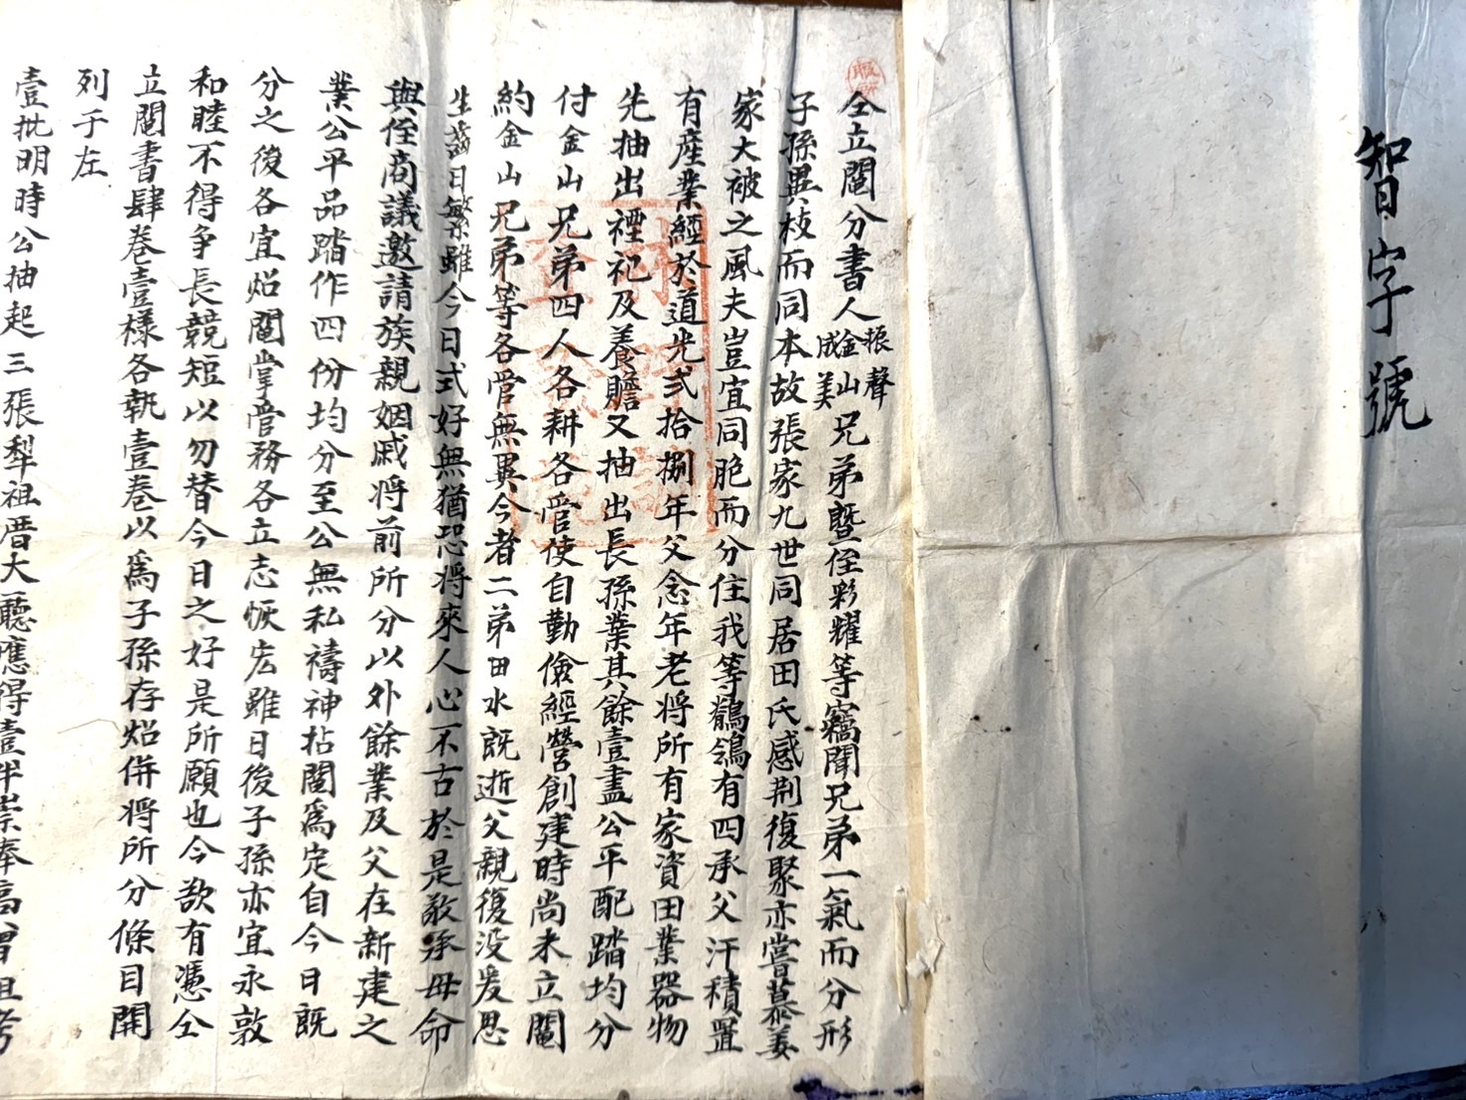 智字號
仝立鬮分書人振聲金山成美兄弟暨侄彩耀等竊聞兄弟一氣而分形
子孫異枝而同本故張家九世同居田氏感荆復聚亦嘗慕姜
家大被之風夫豈宜同胞而分住我等鶺鴒有四承父汗積置
有産業經於道光弍拾捌年父念年老将所有家資田業器物
先抽出禋祀及養贍又抽出長孫業其餘壹盡公平配踏均分
付金山兄弟四人各耕各管使自勤儉經營創建時尚未立鬮
約金山兄弟等各管無異今者二弟田水既逝父親復没爰思
生齒日繁雖今日式好無猶恐将來人心不古於是敬承母命
與侄商議邀請族親姻戚将前所分以外餘業及父在新建之
業公平品踏作四份均分至公無私禱神拈鬮為定自今日既
分之後各宜炤鬮掌管務各立志恢宏雖日後子孫亦宜永敦
和睦不得争長競短以勿替今日之好是所願也今欲有憑仝
立鬮書肆卷壹様各執壹卷以爲子孫存炤併将所分條目開
列于左
壹批明時公抽起三張犁祖厝大廳應得壹半崇奉高曾祖考